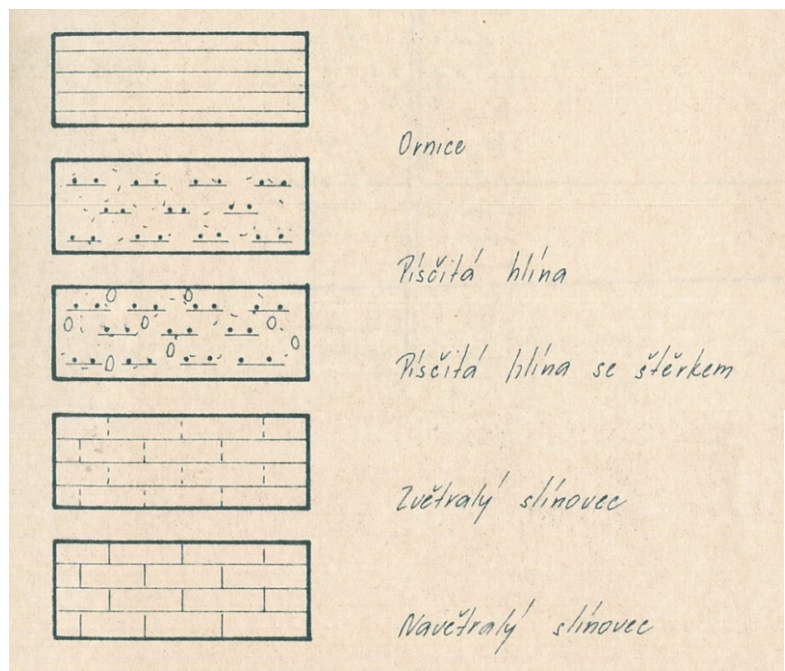 Ornice
Písčitá hlína
Písčitá hlína se štěrkem
Zvětralý slínovec
Navětralý slínovec